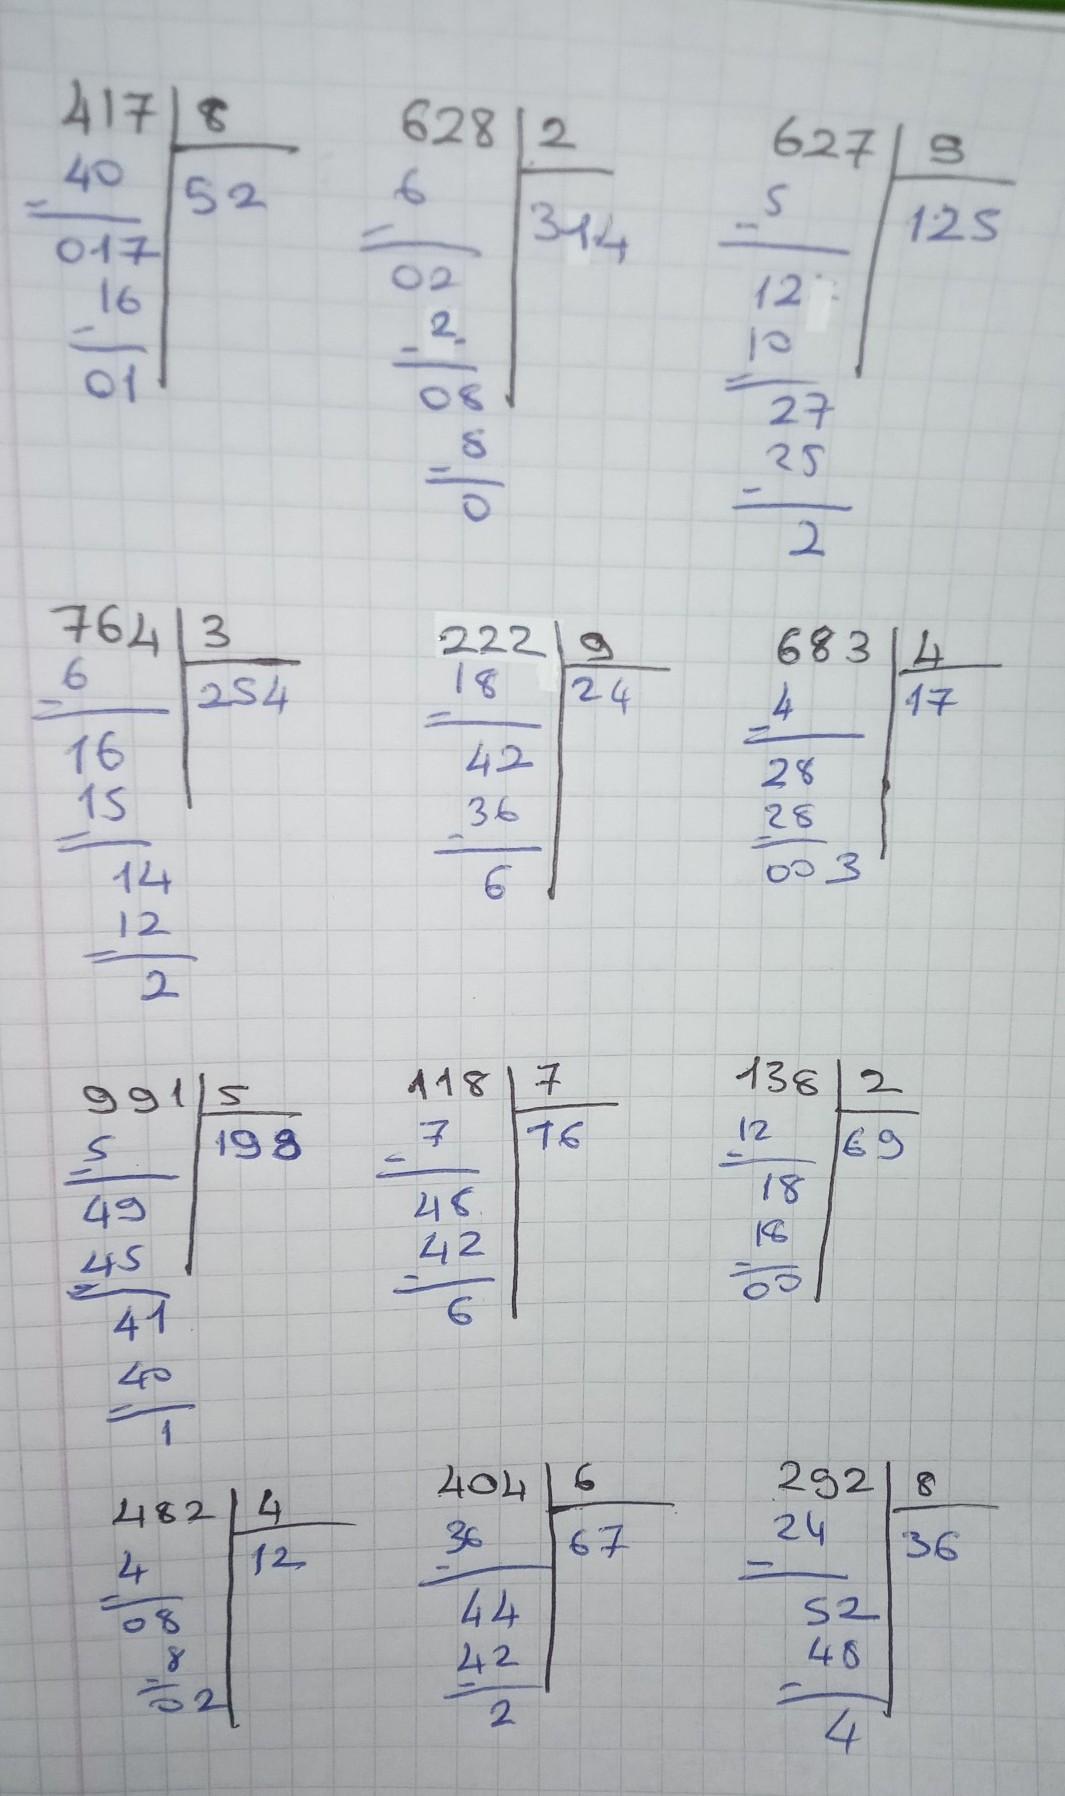 417 8
40 52
017
16
01
628 2
6 314
02
2
08
8
0
627 9
5 125
12
10
27
25
2
764 3
6 254
16
15
14
12
2
222 9
18 24
42
36
6
683 4
4 17
28
28
003
991 5
5 198
49
45
41
40
1
118 7
7 16
48
42
6
138 2
12 69
18
18
00
482 4
4 12
08
8
02
404 6
36 67
44
42
2
292 8
24 36
52
48
4